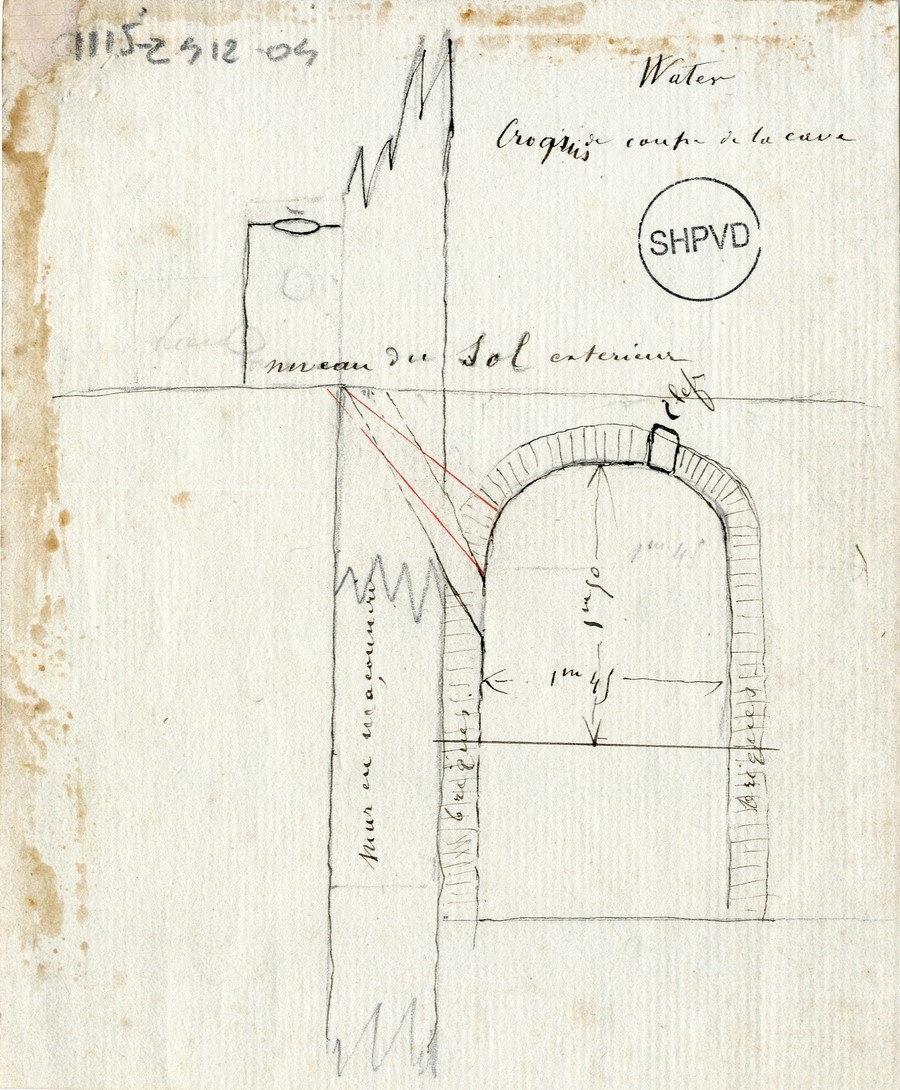 1115-2512-05
Water
Croquis de coupe de la cave
SHPVD
niveau du Sol exterieur
clef
1m 45
1m 50
1m 45
mur en maçonnerie
briques
briques